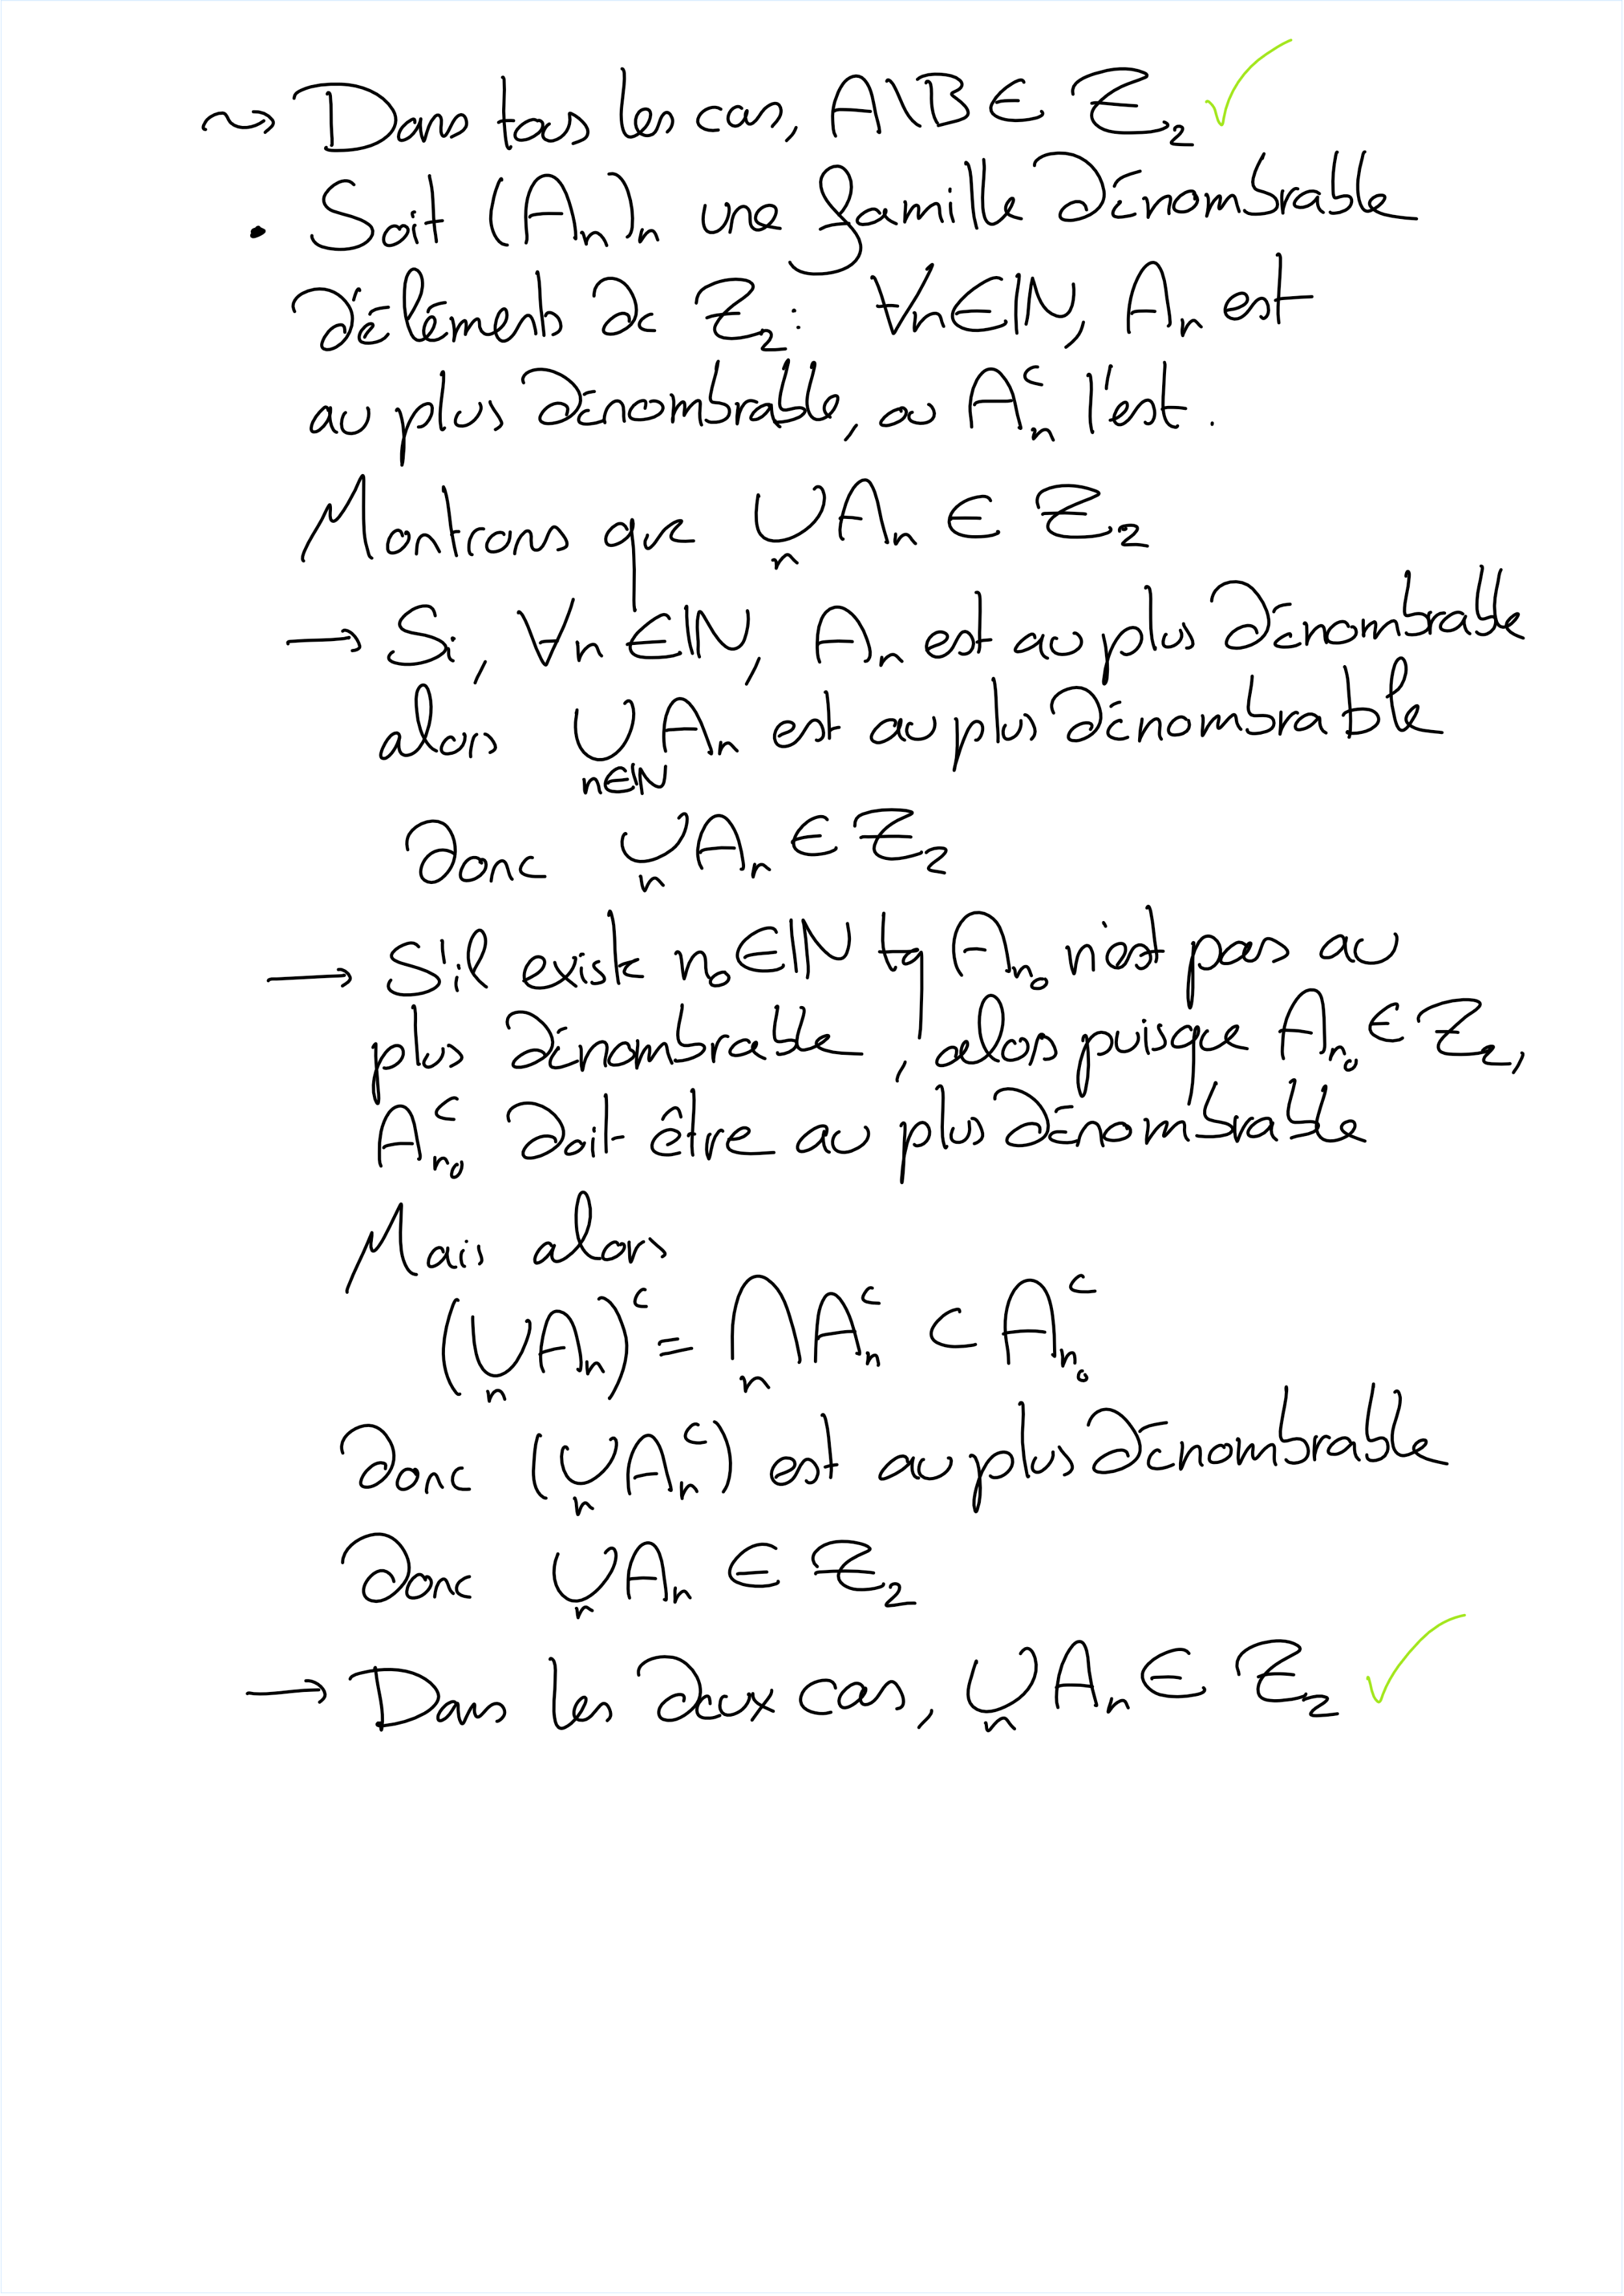 ⇝ Dans tous les cas, A\B ∈ Z₂ ✓
• Soit (Aₙ)ₙ une famille dénombrable
d'éléments de Z₂ : ∀n∈ℕ, Aₙ est
au plus dénombrable, ou Aₙᶜ l'est.
Montrons que ∪ₙ Aₙ ∈ Z₂
→ Si, ∀n∈ℕ, Aₙ est au plus dénombrable
alors ∪_{n∈ℕ} Aₙ est au plus dénombrable
donc ∪ₙ Aₙ ∈ Z₂
→ S'il existe n₀∈ℕ tq A_{n₀} n'est pas au
plus dénombrable, alors puisque A_{n₀} ∈ Z₂,
A_{n₀}ᶜ doit être au plus dénombrable
Mais alors
(∪ₙ Aₙ)ᶜ = ∩ₙ Aₙᶜ ⊂ A_{n₀}ᶜ
donc (∪ₙ Aₙᶜ) est au plus dénombrable
donc ∪ₙ Aₙ ∈ Z₂
→ Dans les deux cas, ∪ₙ Aₙ ∈ Z₂ ✓